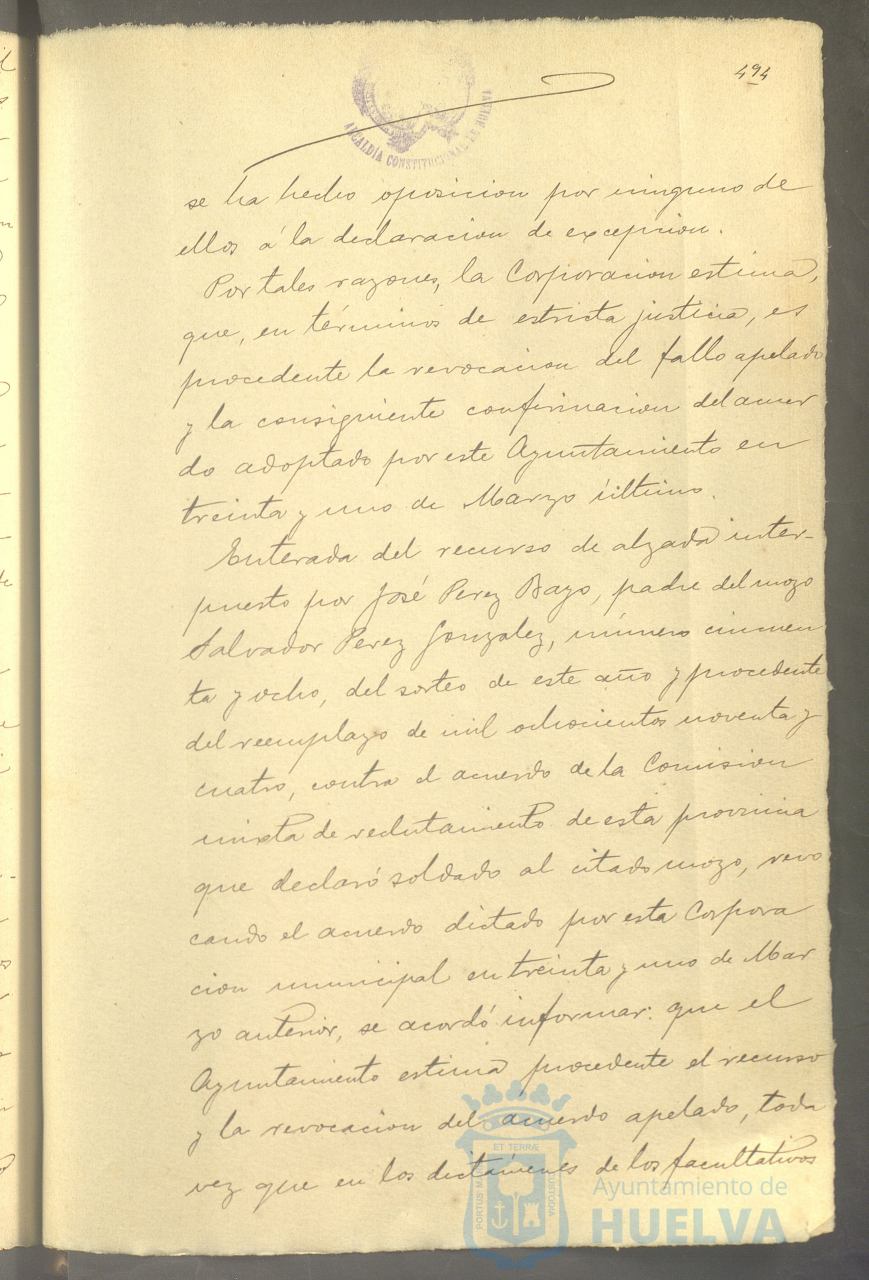 494
ALCALDÍA CONSTITUCIONAL DE HUELVA
se ha hecho oposicion por ninguno de
ellos á la declaracion de excepcion.
Por tales razones, la Corporacion estima,
que, en términos de estricta justicia, es
procedente la revocacion del fallo apelado
y la consiguiente confirmacion del acuer
do adoptado por este Ayuntamiento en
treinta y uno de Marzo último.
Enterada del recurso de alzada inter-
puesto por José Perez Bayo, padre del mozo
Salvador Perez Gonzalez, número cincuen
ta y ocho, del sorteo de este año y procedente
del reemplazo de mil ochocientos noventa y
cuatro, contra el acuerdo de la Comision
mixta de reclutamiento de esta provincia
que declaró soldado al citado mozo, revo
cando el acuerdo dictado por esta Corpora
cion municipal en treinta y uno de Mar
zo anterior, se acordó informar: que el
Ayuntamiento estima procedente el recurso
y la revocacion del acuerdo apelado, toda
vez que en los dictámenes de los facultativos
PORTUS M ET TERRÆ CUSTODIA
Ayuntamiento de
HUELVA